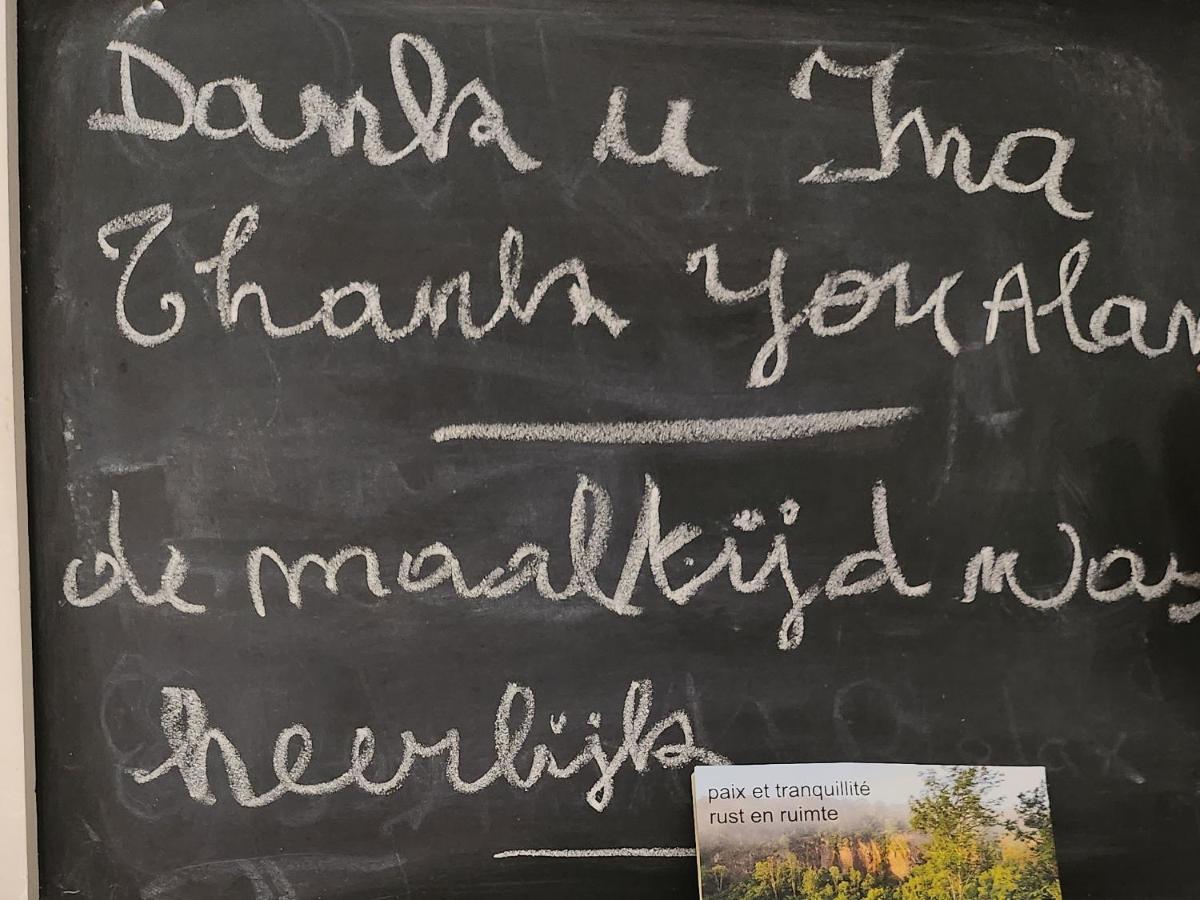 Dank u Ina
Thank you Alan
de maaltijd was
heerlijk
paix et tranquillité
rust en ruimte